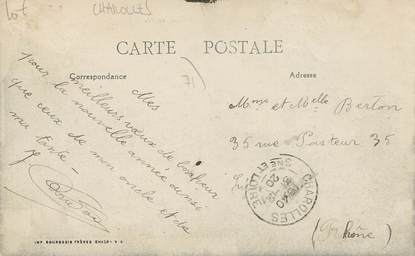 Lot
CHAROLLES
CARTE POSTALE
Correspondance
Adresse
Mes
meilleurs vœux de bonheur
pour la nouvelle année ainsi
que ceux de mon oncle et de
ma tante -
Mme et Melle Berton
35 rue Pasteur 35
(Rhône)
CHAROLLES
SNE ET LOIRE
20
IMP. BOURGEOIS FRÈRES